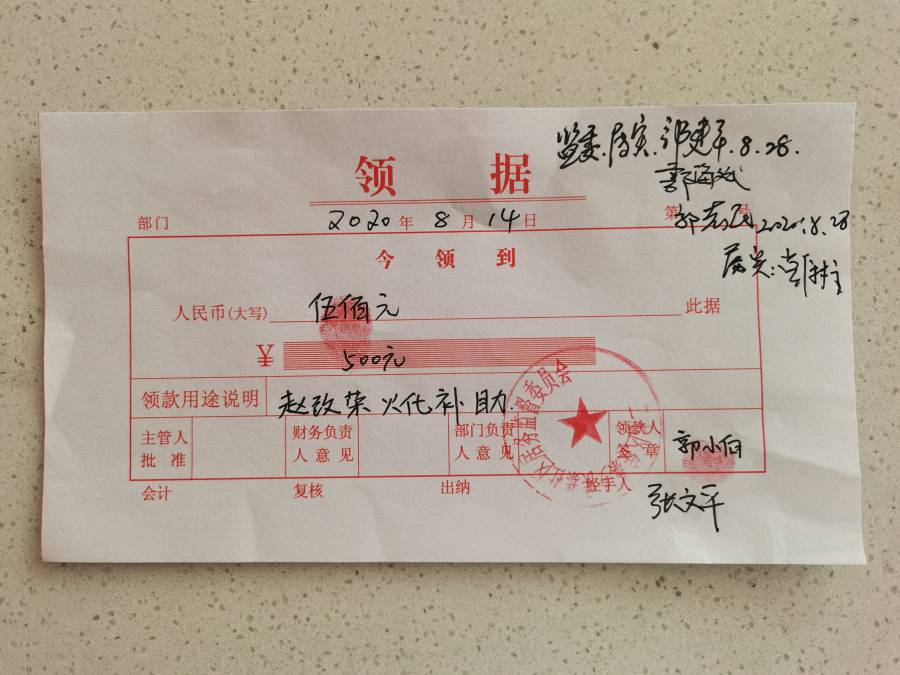 监委.属实.郭建平.8.28.
领 据
郭海斌
部门 2020年 8月 14日 第 号
2020.8.28
今领到
属实:
人民币(大写) 伍佰元 此据
¥ 500元
领款用途说明 赵改荣火化补助.
主管人批准 财务负责人意见 部门负责人意见 领款人签章 郭小白
居务监督委员会
会计 复核 出纳 经手人 张文平